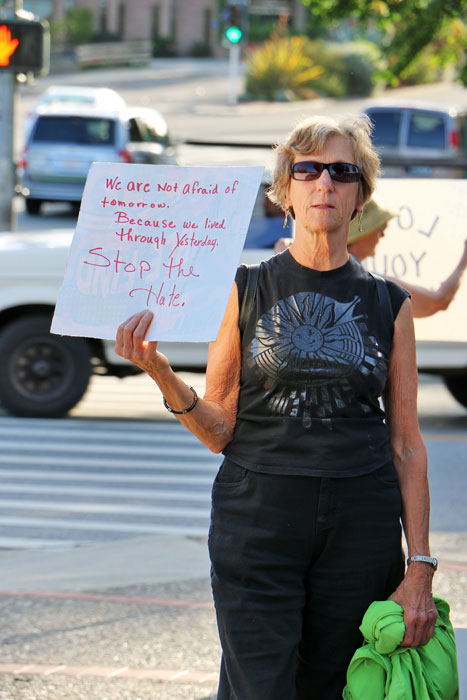 We are Not afraid of
tomorrow.
Because we lived
through Yesterday.
Stop the
Hate.
LO
YOU